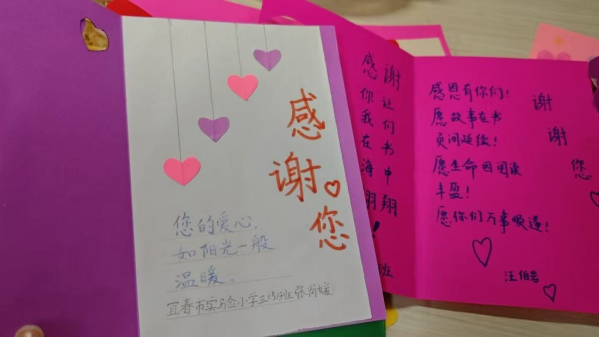 感谢您
您的爱心，
如阳光一般
温暖。
感谢
你让
我们
在书
海中
翱翔
！
班
感恩有你们！
愿故事在书
页间延续！
愿生命因阅读
丰盈！
愿你们万事顺遂！
谢
谢
您